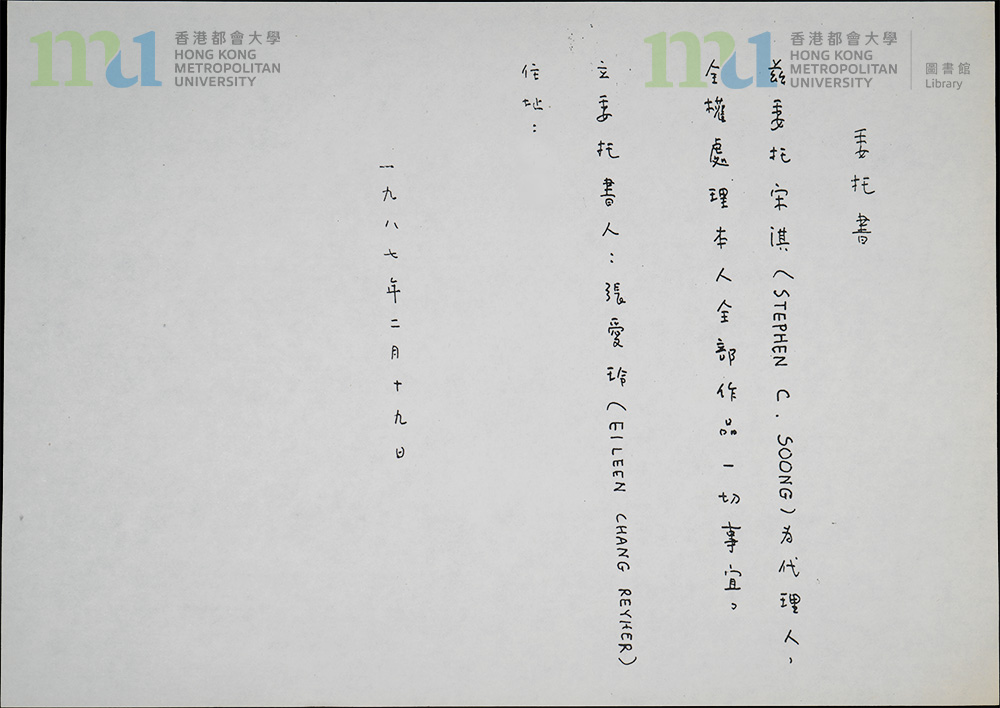 香港都會大學
HONG KONG
METROPOLITAN
UNIVERSITY
香港都會大學
HONG KONG
METROPOLITAN
UNIVERSITY
圖書館
Library
委托書
茲委托宋淇(STEPHEN C. SOONG)为代理人,
全權處理本人全部作品一切事宜。
立委托書人:張愛玲(EILEEN CHANG REYHER)
住址:
一九八七年二月十九日